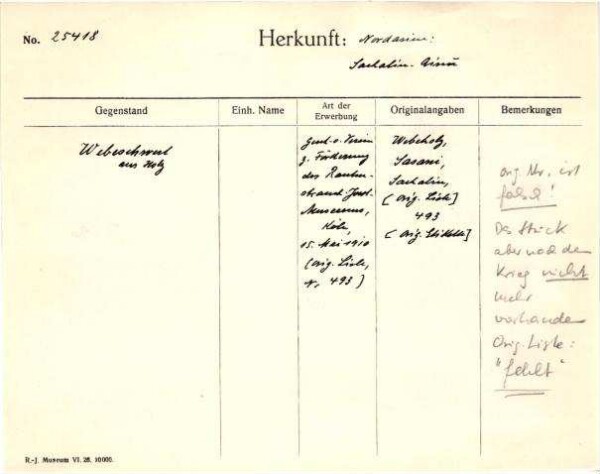 No. 25418
Herkunft: Nordasien:
Sachalin-Ainu
Gegenstand
Einh. Name
Art der Erwerbung
Originalangaben
Bemerkungen
Webeschwert
aus Holz
Gesch. v. Verein
z. Förderung
des Rauten-
strauch-Joest-
Museums,
Köln,
15. Mai 1910
(Orig. Liste,
Nr. 493)
Webeholz,
Sasani,
Sachalin,
(Orig. Liste)
493
(Orig. Etikette)
orig. Nr. ist
falsch!
Das Stück
aber nach dem
Krieg nicht
mehr
vorhanden
Orig. Liste:
"fehlt"
R.-J. Museum VI. 28. 10000.